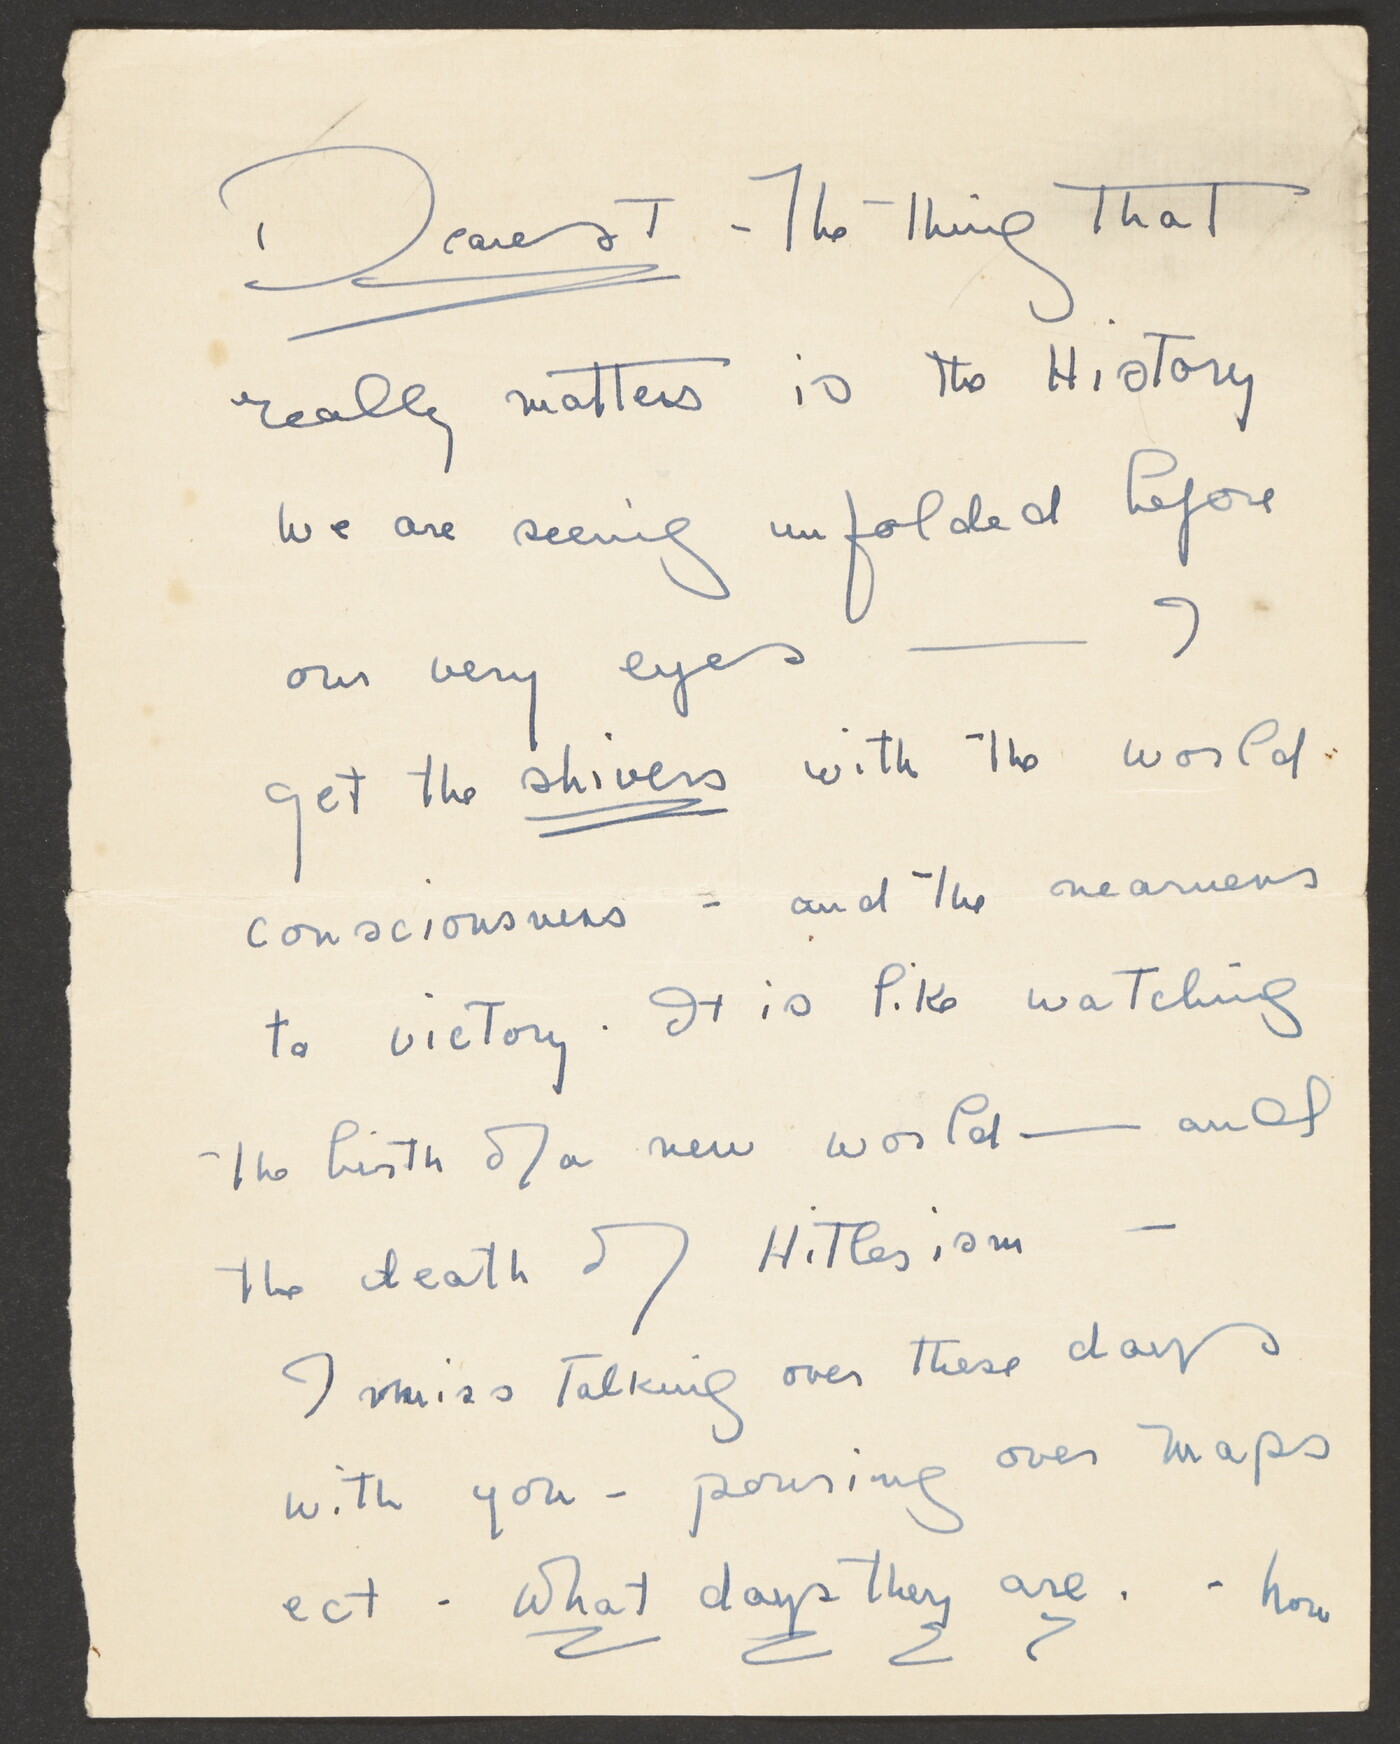 Dearest - The thing that
really matters is the History
we are seeing unfolded before
our very eyes — I
get the shivers with the world
consciousness - and the nearness
to victory. It is like watching
the birth of a new world — and
the death of Hitlerism -
I miss talking over these days
with you - pouring over maps
ect - What days they are. - how